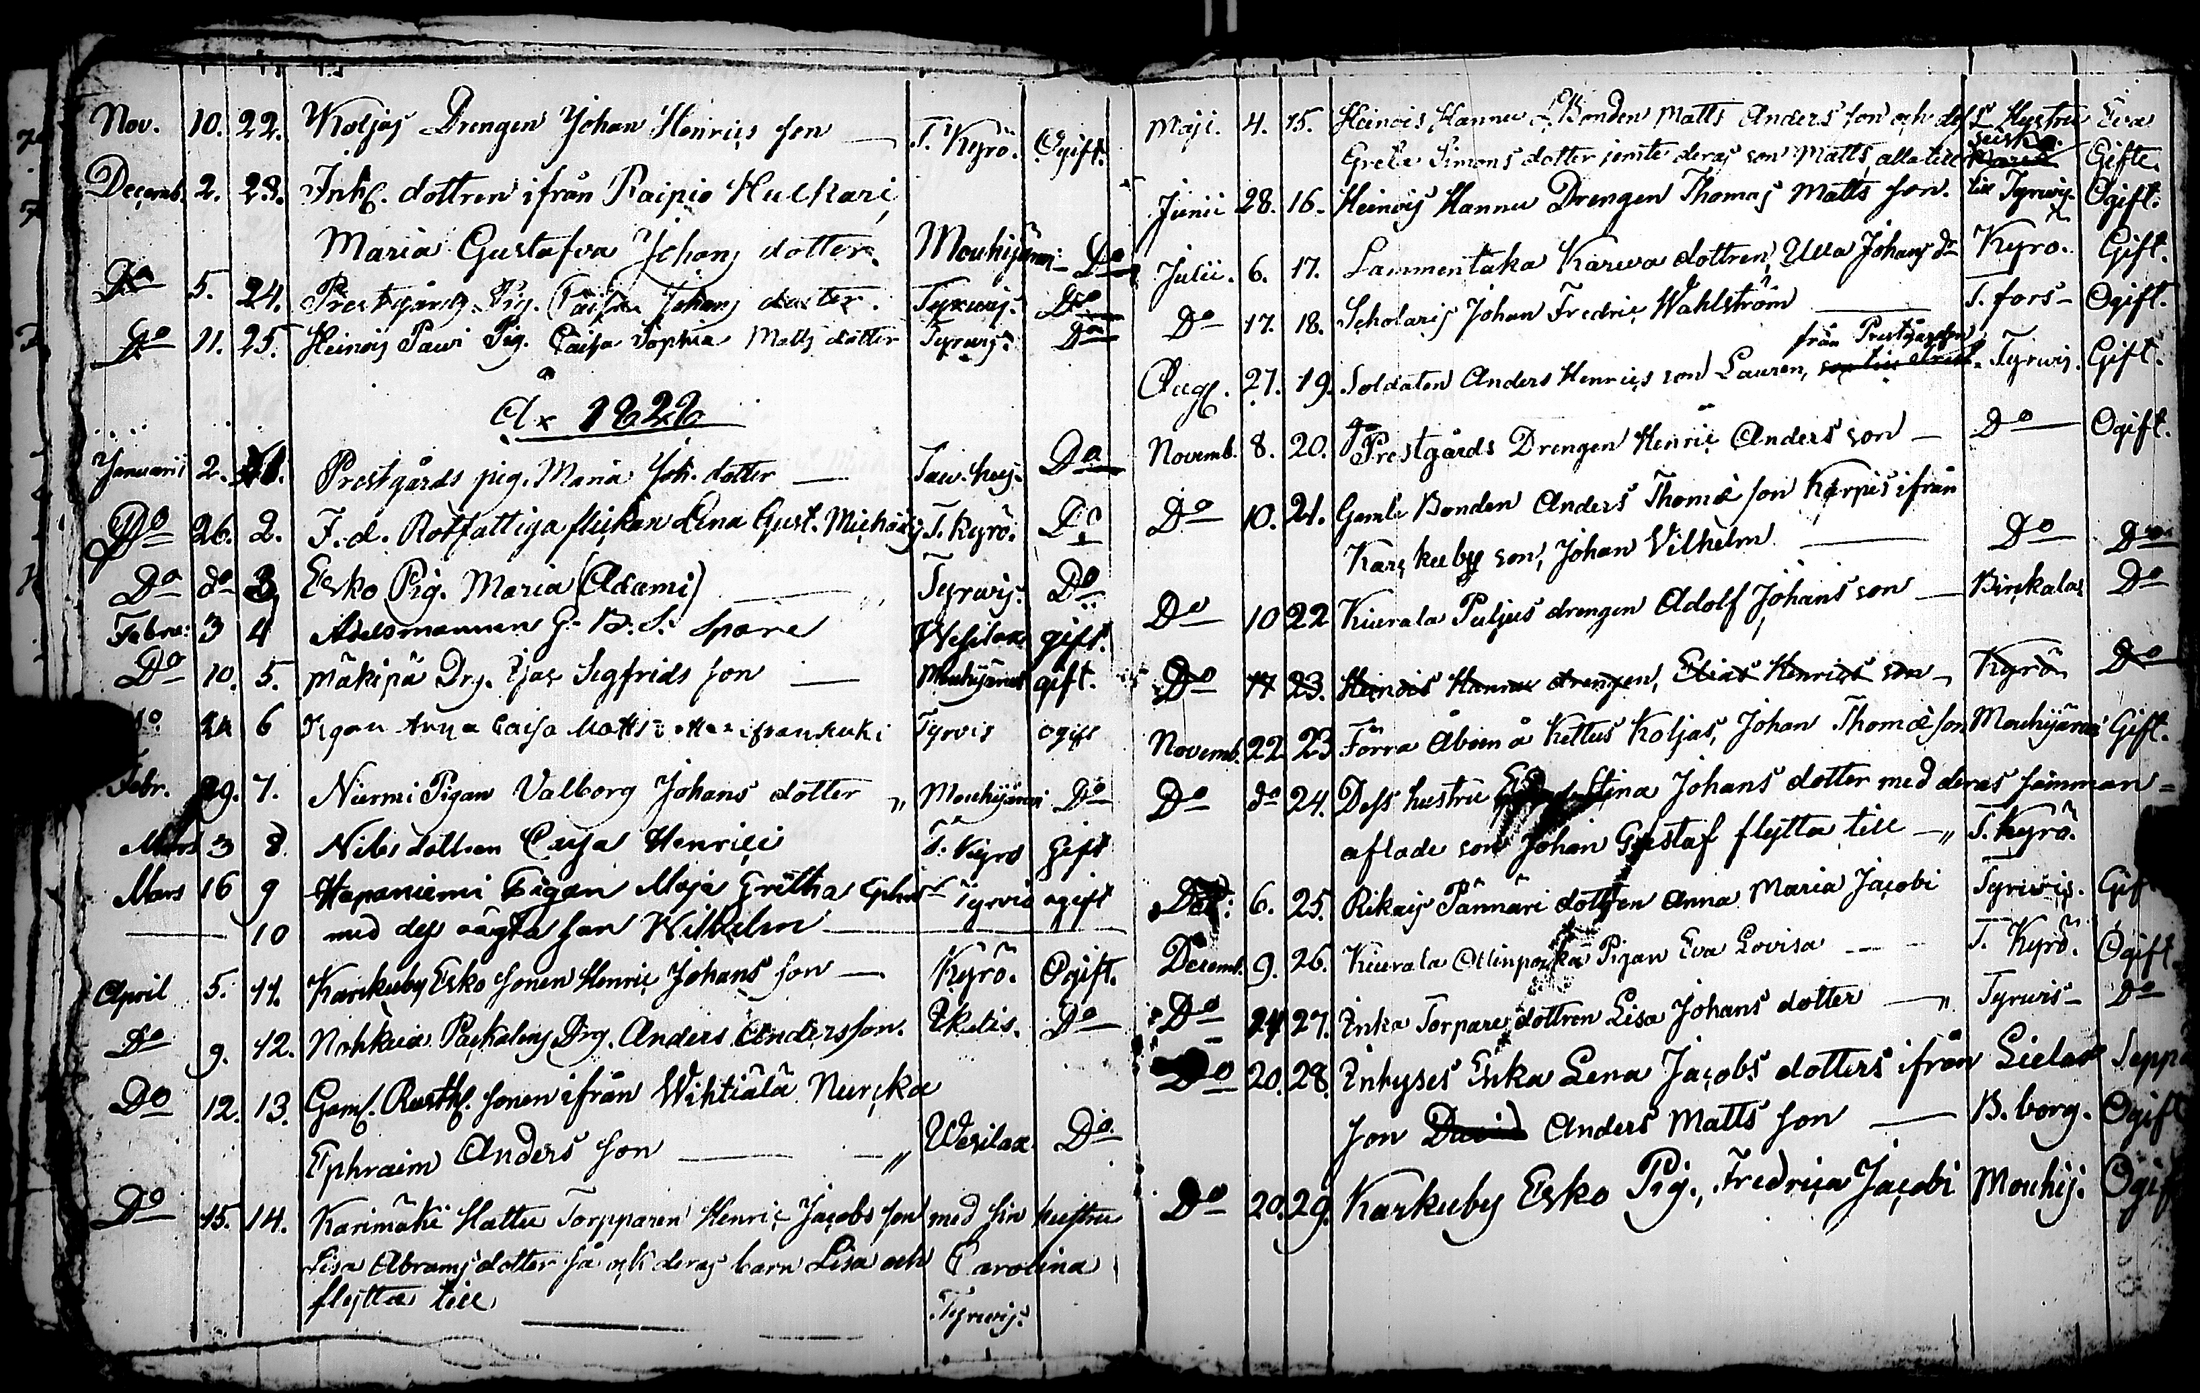 Nov. 10. 22. Koljas Drengen Johan Henrics son — T. Kyrö. Ogift.
Decemb. 2. 23. Inh. dottren ifrån Raipio Huckari
Maria Gustafva Johans dotter. Mouhijärvi Do
Do 5. 24. Prestgårds Pig. Caisa Johans dotter. Tyrwis. Do
Do 11. 25. Heinois Pawi Pig. Caisa Sophia Matts dotter Tyrwis. Do
Januarii 2. 1. Prestgårds pig. Maria Joh. dotter — Taw. Do
Do 26. 2. F. d. Rotfattiga flickan Lena Gust. T. Kyrö. Do
Do do 3. Esko Pig. Maria (Adami) — Tyrwis. Do
Febru: 3 4 Adelsmannen G. B. S. Spare Wesilax gift.
Do 10. 5. Mäkipä Drg. Isac Sigfrids son — Mouhijärvi gift.
Do 24 6 Pigan Anna Caisa Matts dotter ifrån kuki Tyrvis ogift
Febr. 29. 7. Niermi Pigan Valborg Johans dotter „ Mouhijärvi Do
Mars 3 8. Nibs dottren Caisa Henrici T. Kyrö Gift
Mars 16 9 Haponiemi Pigan Maja Gretha Tyrvis ogift
— 10 med dess oägta son Wilhelm —
April 5. 11. Karkuby Esko sonen Henric Johans son — Kyrö. Ogift.
Do 9. 12. Nohkua Drg. Anders Anders son. Do
Do 12. 13. Gaml. Rusth. sonen ifrån Wihtiälä Nurcka
Ephraim Anders son — „ Wesilax Do
Do 15. 14. Karimäki Hattu Torpparen Henric Jacobs son med sin hustru
Lisa Abrams dotter så och deras barn Lisa och Carolina
flytta till Tyrwis.
Maji. 4. 15. Heinois Hannu Bonden Matts Anders son och dess Hustru Eva
Greta Simons dotter jemte deras son Matts alla till Gifte.
Junii 28. 16. Heinois Hannu Drengen Thomas Matts son. till Tyrwis. Ogift.
Julii. 6. 17. Lammentaka Karwa dottren, Ulla Johans dr Kyrö. Gift.
Do 17. 18. Scholaris Johan Fredric Wahlström — T. fors- Ogift.
från Prestgården
Aug. 27. 19. Soldaten Anders Henrics son Lauren, Tyrwis. Gift.
Novemb. 8. 20. Prestgårds Drengen Henric Anders son — Do Ogift.
Do 10. 21. Gamle Bonden Anders Thomæ son Korpis ifrån
Karckuby son, Johan Vilhelm — Do Do
Do 10 22 Kiurala Puljus drengen Adolf Johans son — Birckala Do
Do 17 23. Heinois Hannu drengen, Elias Henrics son — Kyrö. Do
Novemb. 22. 23 Förra Åboen å Kettus Koljas, Johan Thomæ son Mouhijärvi Gift.
Do do 24. Dess hustru Stina Johans dotter med deras samman=
aflade son Johan Gustaf flytta till — „ T. Kyrö.
Dec: 6. 25. Rikais Pännäri dottren Anna Maria Jacobi Tyrwis. Gift
Decemb. 9. 26. Kiurala Ollinpoika Pigan Eva Lovisa — T. Kyrö. Ogift
Do 24 27. Enka Torpare dottren Lisa Johans dotter — „ Tyrwis- Do
Do 20. 28. Inhyses Enka Lena Jacobs dotters ifrån Liela Seppä
son David Anders Matts son — B. borg. Ogift
Do 20. 29. Karkuby Esko Pig., Fredrica Jacobi Mouhij. Ogift